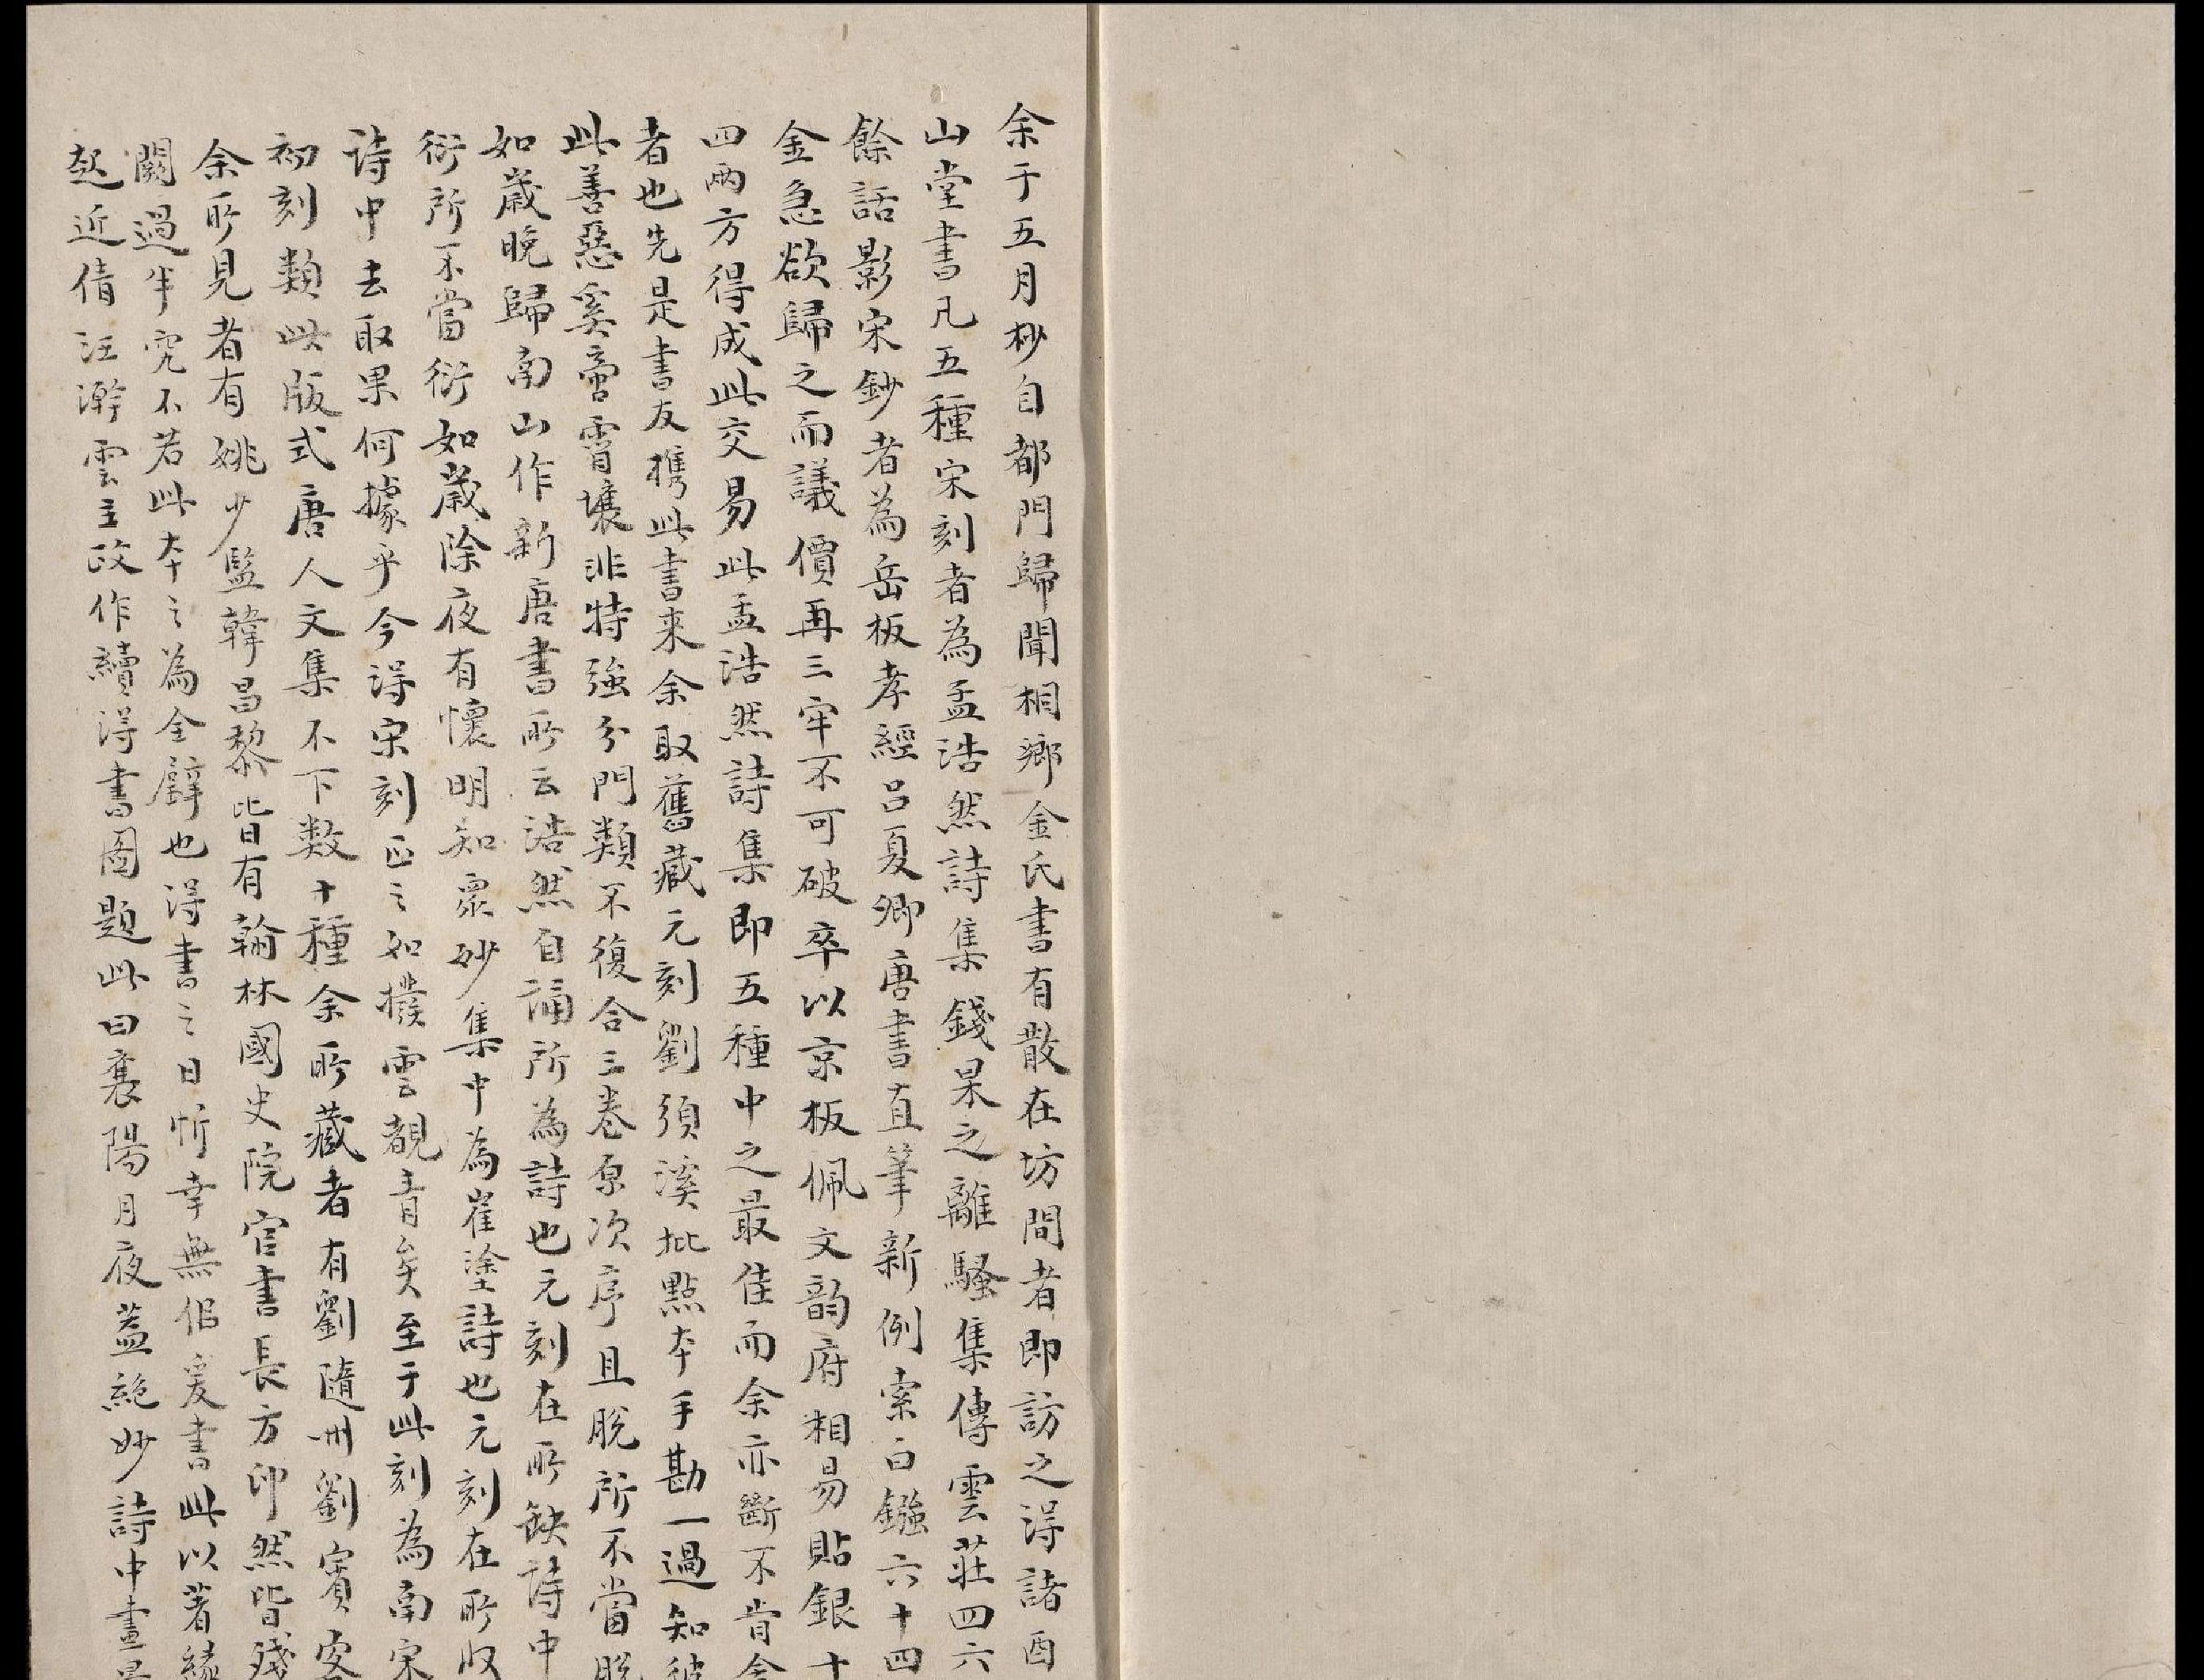 余于五月杪自都門歸聞桐鄉金氏書有散在坊間者即訪之得諸酉
山堂書凡五種宋刻者為孟浩然詩集錢杲之離騷集傳雲莊四六
餘話影宋鈔者為岳板孝經呂夏卿唐書直筆新例索白鏹六十四
金急欲歸之而議價再三牢不可破卒以京板佩文韵府相易貼銀十
四兩方得成此交易此孟浩然詩集即五種中之最佳而余亦斷不肯舍
者也先是書友携此書来余取舊藏元刻劉須溪批點本手勘一過知彼
此善惡奚啻霄壤非特強分門類不復合三卷原次序且脫所不當脫
如歲晚歸南山作新唐書所云浩然自誦所為詩也元刻在所缺詩中
衍所不當衍如歲除夜有懷明知衆妙集中為崔塗詩也元刻在所收
詩中去取果何據乎今得宋刻正之如撥雲覩青矣至于此刻為南宋
初刻類此版式唐人文集不下数十種余所藏者有劉隨州劉賓客
余所見者有姚少監韓昌黎皆有翰林國史院官書長方印然皆殘
闕過半究不若此本之為全璧也得書之日忻幸無似爰書此以著緣
起近倩汪澣雲主政作續得書圖題此曰襄陽月夜葢絶妙詩中畫景